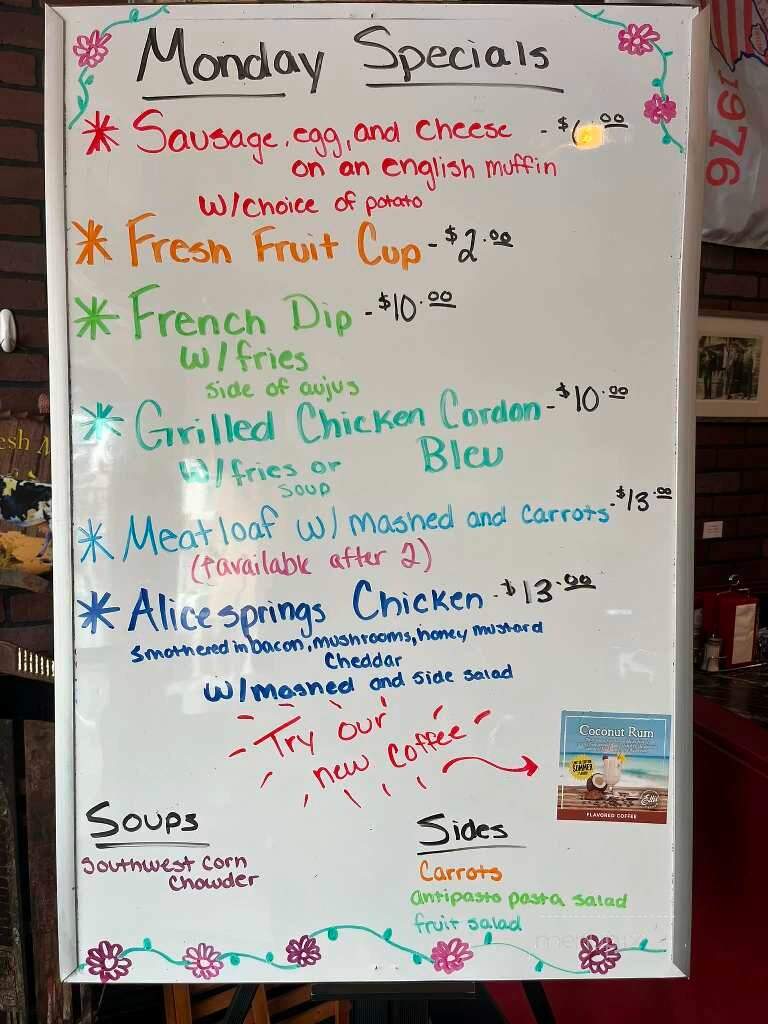 Monday Specials
* Sausage, egg, and cheese - $ .00
on an english muffin
w/choice of potato
* Fresh Fruit Cup - $2.00
* French Dip - $10.00
w/fries
side of aujus
* Grilled Chicken Cordon - $10.00
Bleu
w/fries or
soup
* Meatloaf w/ mashed and carrots - $13.00
(available after 2)
* Alice springs Chicken - $13.00
Smothered in bacon, mushrooms, honey mustard
Cheddar
w/mashed and side salad
Try our
new coffee
Coconut Rum
SUMMER
FLAVORED COFFEE
Soups
Southwest Corn
Chowder
Sides
Carrots
antipasto pasta salad
fruit salad
1976